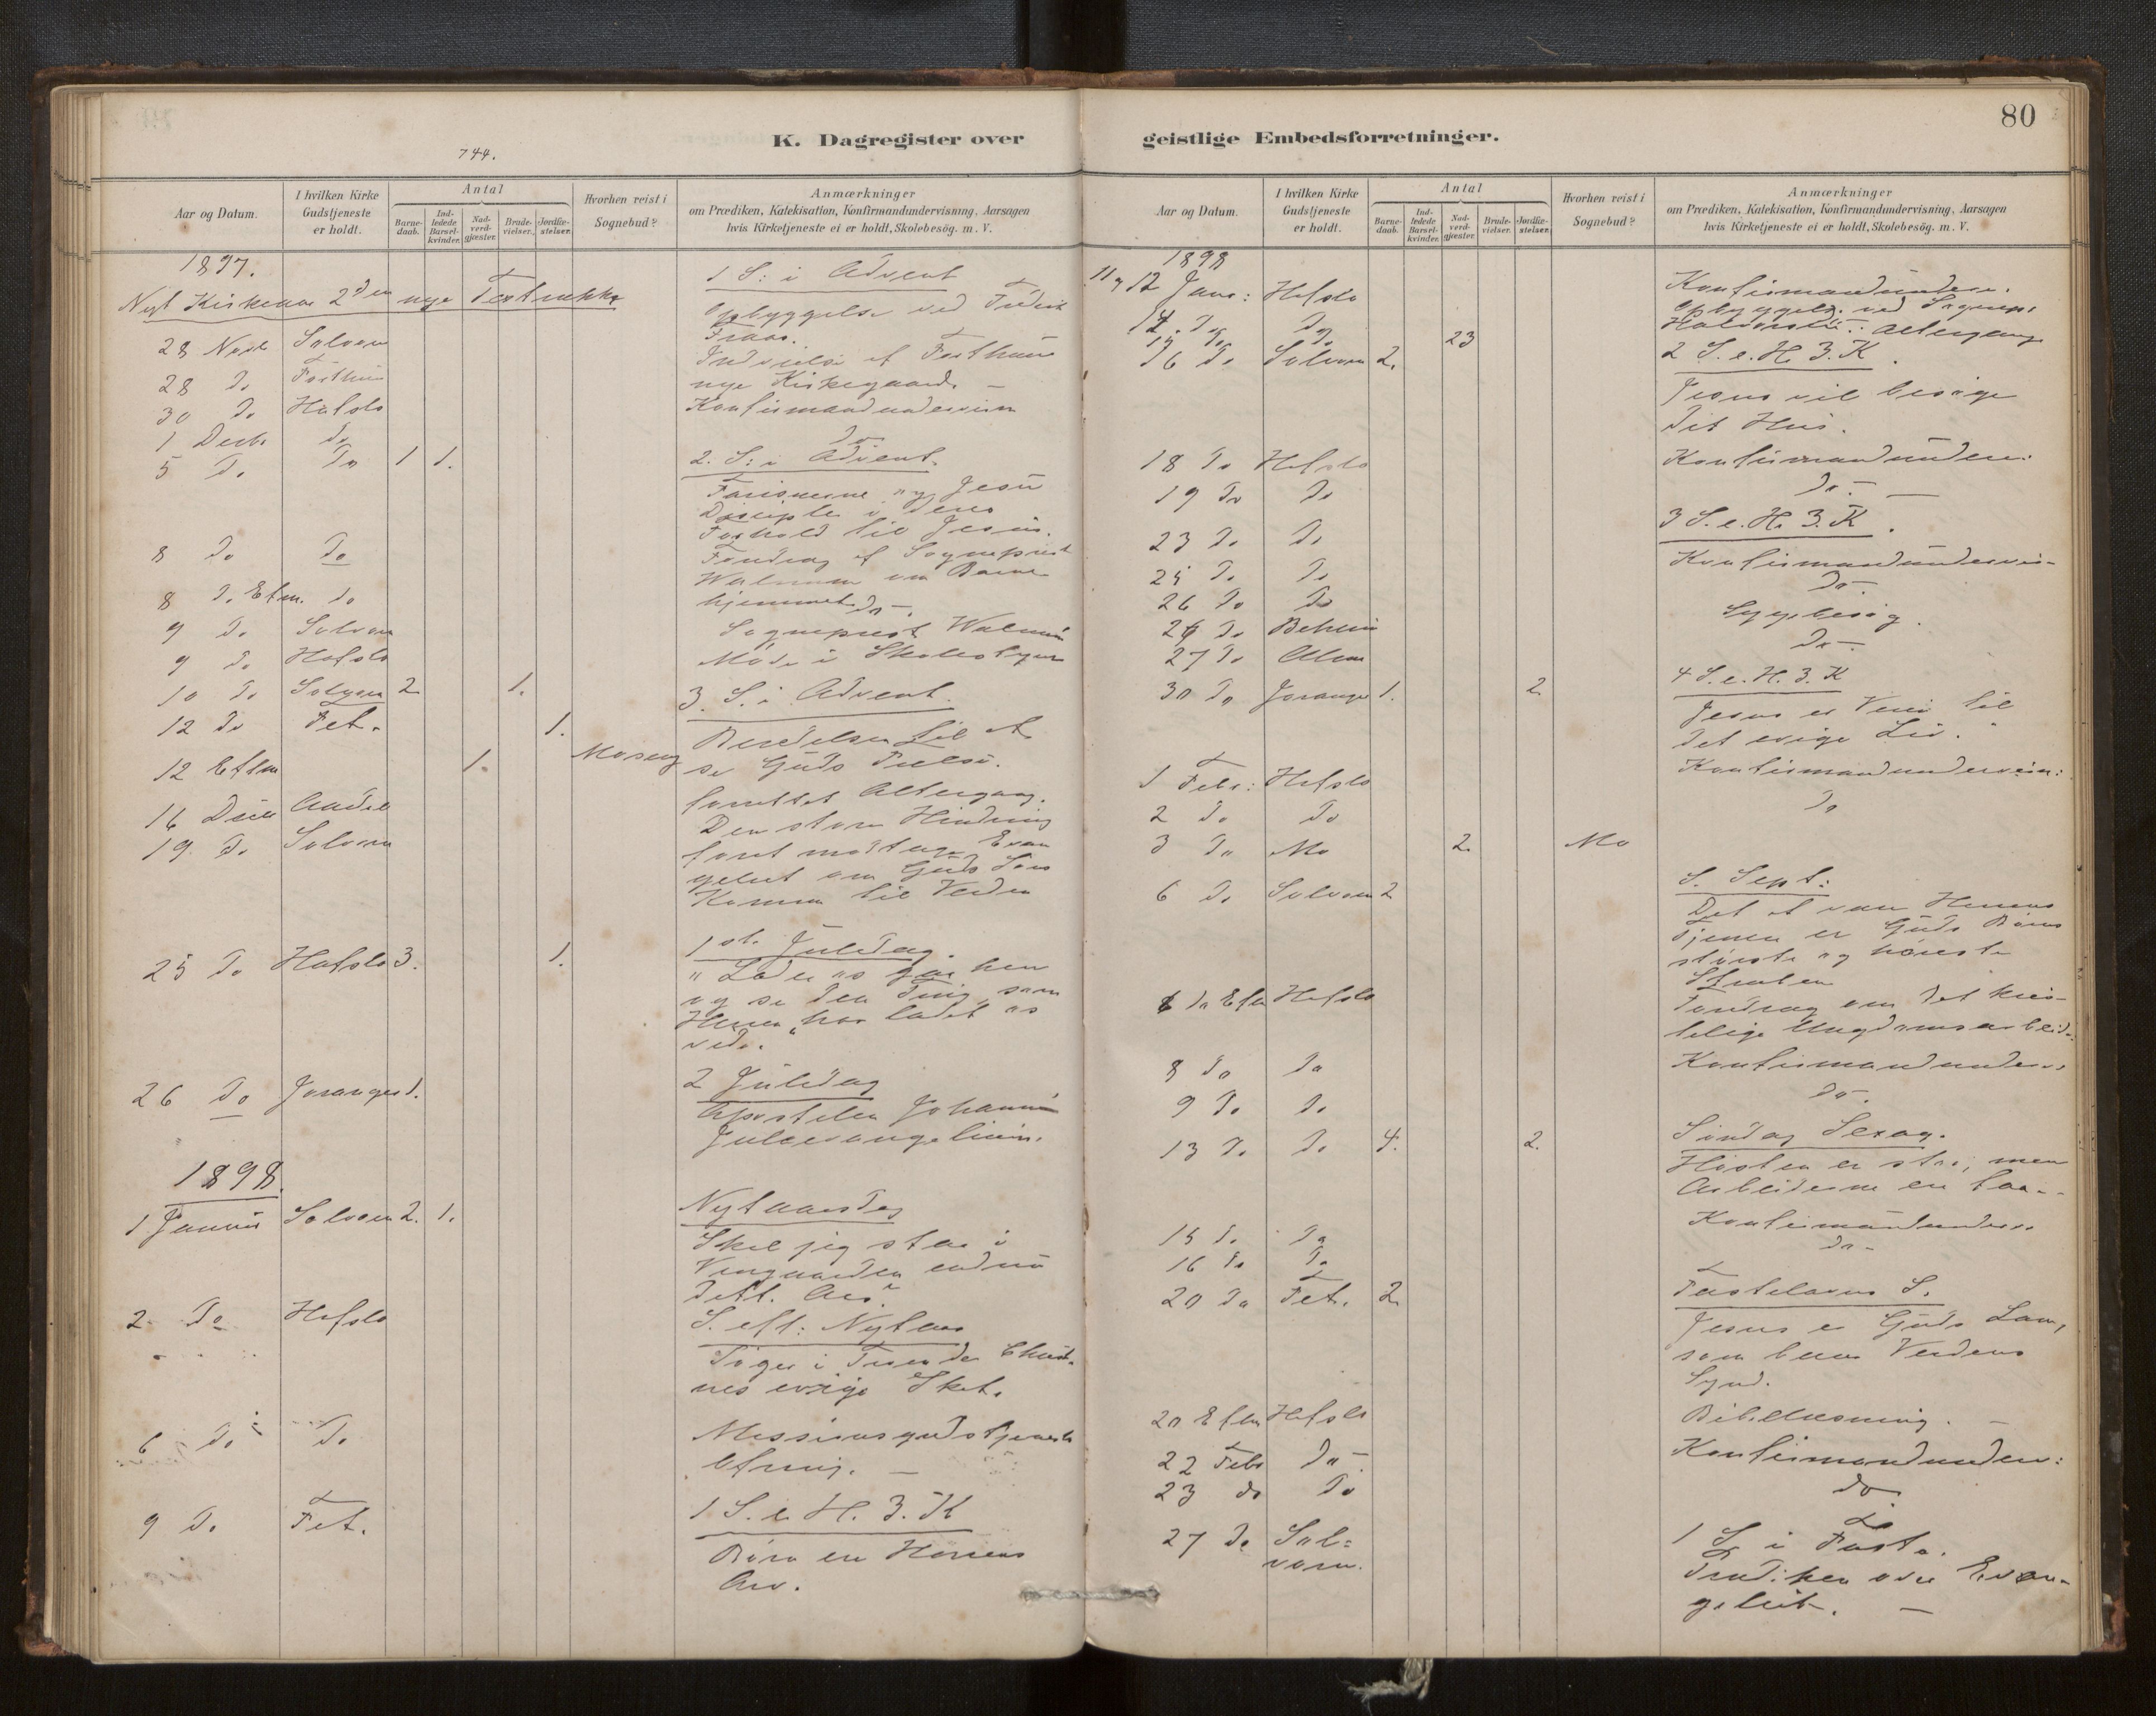 80
K. Dagregister over
geistlige Embedsforretninger.
744.
Aar og Datum.
I hvilken Kirke Gudstjeneste er holdt.
Antal
Barne-daab.
Ind-ledede Barsel-kvinder.
Nad-verd-gjæster.
Brude-vielser.
Jordfæ-stelser.
Hvorhen reist i Sognebud?
Anmærkninger
om Prædiken, Katekisation, Konfirmandundervisning, Aarsagen
hvis Kirketjeneste ei er holdt, Skolebesög. m. V.
1897.
Nyt Kirkeaar 2den nye Textrække
1 S: i Advent
Opbyggelse ved
28 Solvorn
Indvielse af
28 do
nye Kirkegaard. –
30 do Hafslo Konfirmandundervisn
1 Decbr do do
5 do do 1 1. 2. S: i Advent.
Farisæerne og Jesu
Disciple i deres
Forhold til Jesus.
8 do do Foredrag af Sogneprest
om Barne-
hjemmet
8 do Eftm. do do –.
9 do Solvorn Sogneprest
9 do Hafslo Møde i Skolestyret
10 do Solvorn 2 1.
3. S. i Advent.
12 do Fet. 1.
til at
se Guds
12 Eftm 1. forrettet Altergang.
16
19. do Solvorn Den store Hindring
Guds Søns
Komme til Verden
25 do Hafslo 3. 1. 1st Juledag.
" Lader os gaa hen
og se den Ting, som
Herren har ladet os
vide."
26 do Joranger 1. 2 Juledag
Apostelen Johannes
Juleevangelium.
1898.
1 Januar Solvorn 2. 1. Nytaarsdag
Skal jeg staa i
Vingaarden endnu
dette Aar?
2 do Hafslo S. eft: Nytaar
evige
6 do do Missionsgudstjeneste
9 do Fet. 1 S. e. H. 3. K
Børn en Herrens
Arv.
Aar og Datum.
I hvilken Kirke Gudstjeneste er holdt.
Antal
Barne-daab.
Ind-ledede Barsel-kvinder.
Nad-verd-gjæster.
Brude-vielser.
Jordfæ-stelser.
Hvorhen reist i Sognebud?
Anmærkninger
om Prædiken, Katekisation, Konfirmandundervisning, Aarsagen
hvis Kirketjeneste ei er holdt, Skolebesög. m. V.
1898
11 og 12 Janr: Hafslo Konfirmandunderv.
do do Opbyggels. ved Sognepr
23 Altergang
16 do Solvorn 2. 2 S. e. H. 3. K.
Jesus vil besøge
dit Hus.
18 do Hafslo Konfirmandunderv:
19 do do do –
23 do do 3 S. e. H. 3. K.
25 do do Konfirmandundervis-
26 do do do –
26 do Sygebesøg.
27 do do –
30 do Joranger 1. 2. 4 S. e. H. 3. K
Jesus er Veien til
det evige Liv."
1 Febr: Hafslo Konfirmandundervisn:
2 do do do
3 do Mo 2. Mo
6 do Solvorn 2 S. Sept:
Det at være Herrens
Tjener er Guds Børns
største og
6 do Eftm Hafslo Foredrag om det kris-
telige Ungdomsarbeid.
8 do do Konfirmandunderv.
9 do do do –
13 do do 4. 2. Søndag Sexag.
Høsten er stor, men
Arbeiderne ere faa. –
15 do do Konfirmandunderv.
16 do do do –
20 do Fet. 2 Fastelavns S.
Jesus er Guds Lam,
som bærer Verdens
Synd.
20 Eftm Hafslo Bibellæsning. –
22 Febr do – Konfirmandunderv:
23 do do do
27 do Sol=
vorn.
1 S. i Faste.
Prædiken over Evan-
geliet. –